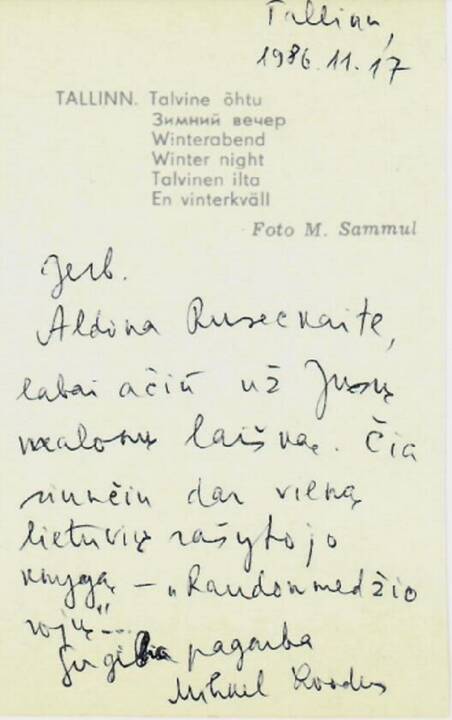 Tallinn,
1986.11.17
TALLINN. Talvine õhtu
Зимний вечер
Winterabend
Winter night
Talvinen ilta
En vinterkväll
Foto M. Sammul
Gerb.
Aldona Ruseckaite,
labai ačiū už Jūsų
malonų laišką. Čia
siunčiu dar vieną
lietuvių rašytojo
knygą – „Raudonmedžio
rojų“ –
Su gilia pagarba
Mihkel Loodus